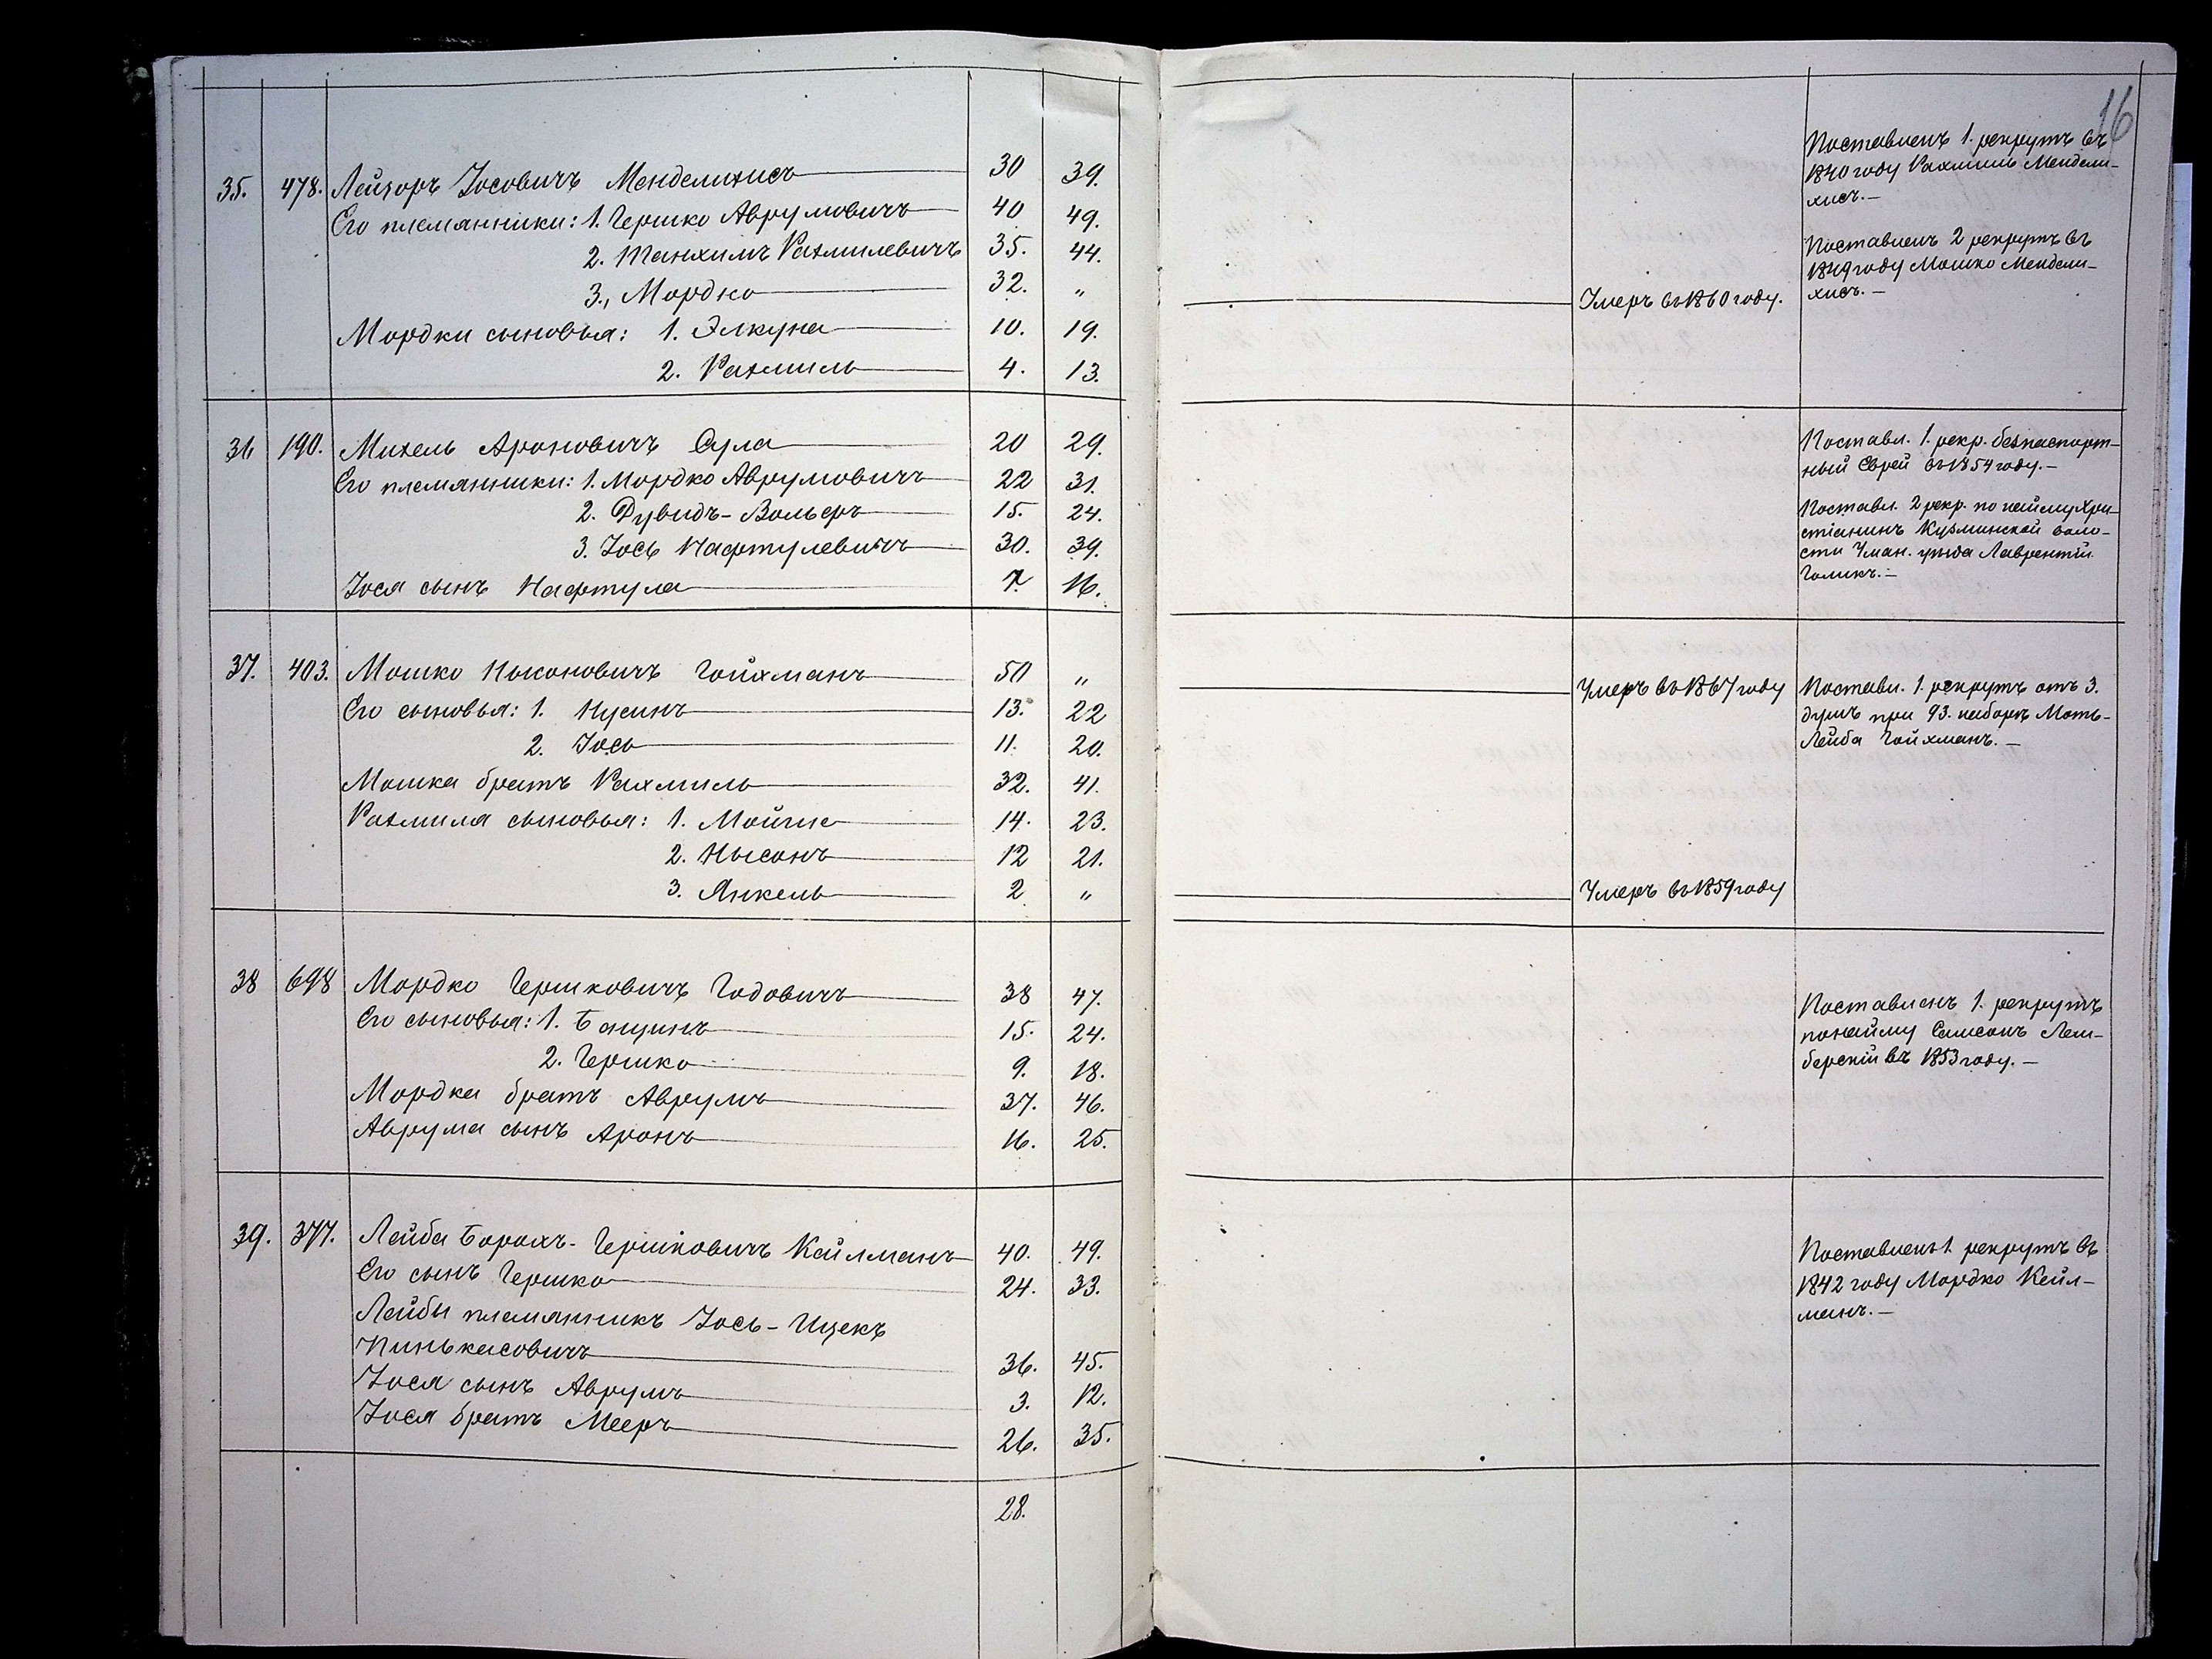 16
35. 478. Лейзоръ Іосовичъ Менделихисъ 30 39.
Его племянники: 1. Гершко Аврумовичъ 40 49.
2. Танхимъ Рахмилевичъ 35. 44.
3., Мордко 32. „ Умеръ въ 1860 году.
Мордки сыновья: 1. Элкуна 10. 19.
2. Рахмиль 4. 13.
Поставленъ 1. рекрутъ въ
1840 году Рахмиль Мендели-
хисъ.—
Поставленъ 2 рекрутъ въ
1849 году Мошко Мендели-
хисъ.—
36 190. Михель Ароновичъ Сула 20 29.
Его племянники: 1. Мордко Аврумовичъ 22 31.
2. Дувидъ-Вольфъ 15. 24.
3. Іось Нафтулевичъ 30. 39.
Іося сынъ Нафтула 7. 16.
Поставл. 1. рекр. безпаспорт-
ный Еврей въ 1854 году.—
Поставл. 2 рекр. по найму Хри-
стіанинъ Кузминской воло-
сти Уман. уѣзда Лаврентій
Голикъ.—
37. 403. Мошко Нысоновичъ Гойхманъ 50 „ Умеръ въ 1867 году
Его сыновья: 1. Нусинъ 13. 22
2. Іось 11. 20.
Мошка братъ Рахмиль 32. 41.
Рахмиля сыновья: 1. Мойше 14. 23.
2. Нысонъ 12 21.
3. Янкель 2 „ Умеръ въ 1859 году
Поставл. 1. рекрутъ отъ 3.
душъ при 93. наборѣ Моть-
Лейба Гойхманъ.—
38 698 Мордко Гершковичъ Годовичъ 38 47.
Его сыновья: 1. Банцинъ 15. 24.
2. Гершко 9. 18.
Мордка братъ Аврумъ 37. 46.
Аврума сынъ Аронъ 16. 25.
Поставленъ 1. рекрутъ
понайму Самсонъ Лем-
берскій въ 1853 году.—
39. 377. Лейба Борохъ-Гершковичъ Кайлманъ 40. 49.
Его сынъ Гершко 24. 33.
Лейбы племянникъ Іось-Ицекъ
Пинькасовичъ 36. 45.
Іося сынъ Аврумъ 3. 12.
Іося братъ Мееръ 26. 35.
Поставленъ 1. рекрутъ въ
1842 году Мордко Кейл-
манъ.—
28.